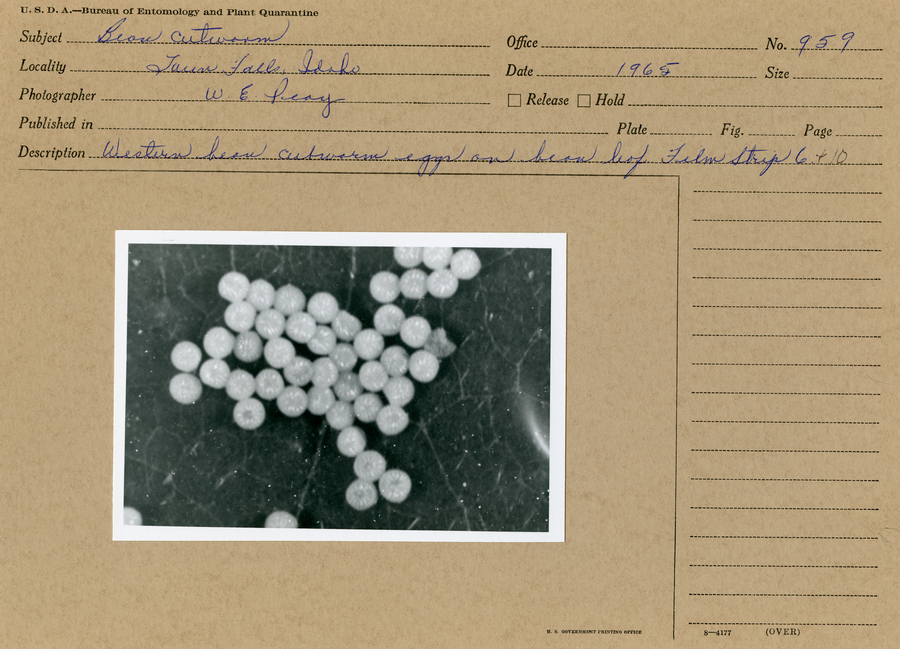 U. S. D. A.—Bureau of Entomology and Plant Quarantine
Subject Bean cutworm Office No. 959
Locality Twin Falls, Idaho Date 1965 Size
Photographer W. E. Peay Release Hold
Published in Plate Fig. Page
Description Western bean cutworm eggs on bean leaf. Film Strip 6 + 10
U. S. GOVERNMENT PRINTING OFFICE
8—4177 (OVER)